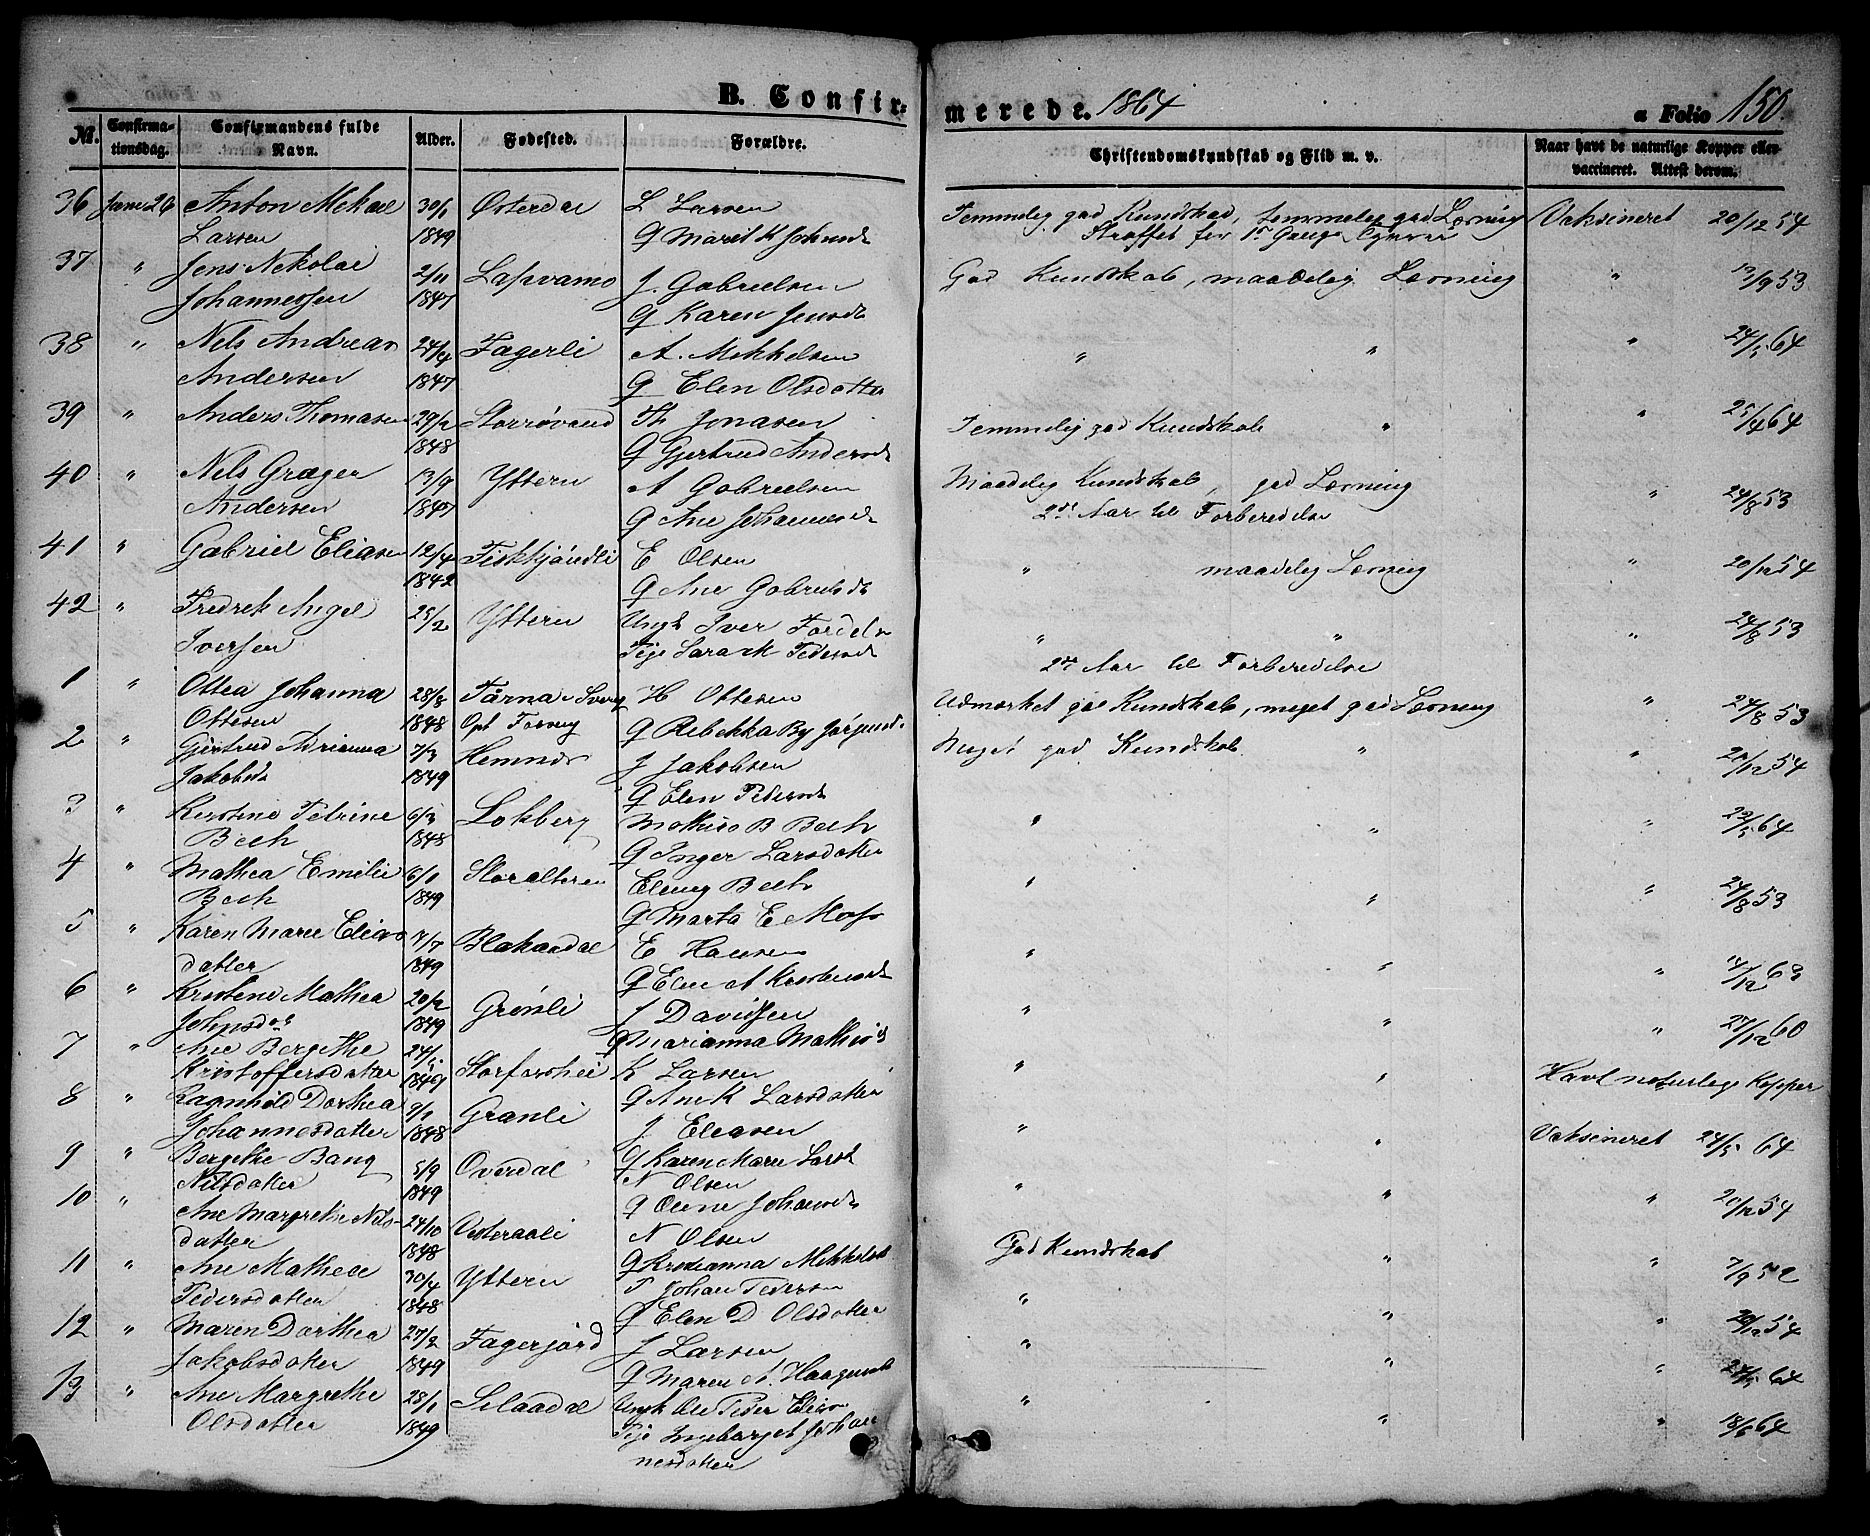 B. Confir-
merede. 1864
a Folio 150.
№.
Confirma-
tionsdag.
Confirmandens fulde
Navn.
Alder.
Fødested.
Forældre.
Christendomskundskab og Flid m. v.
Naar havt de naturlige Kopper eller
vaccineret. Attest derom.
36 Juni 26 Anton Mekal 30/1 Østerdal L Larsen Temmelig god Kundskab, temmelig god Lærning Vaksineret 20/12 54
Larsen 1849 G Marit K Straffet for
37 " Jens Nekolai 2/11 Lapvamo J. Gabrielsen God Kundskab, maadelig Lærning " 13/9 53
Johannessen 1847 G Karen Jensdt
38 " Nels Andreas 24/4 Fagerli A. Mekkelsen " " " 24/5 64
Andersen 1847 G Elen Olsdatter
39 " Anders Thomasen 29/2 Storrøvand Th Jonasen Temmelig god Kundskab " " 25/4 64
1848 G Gjertrud Andersdt
40 " Nels Græger 13/9 Yttern A Gabrielsen Maadelig Kundskab, god Lærning " 24/8 53
Andersen 1847 G Ane Johannesdt 2det Aar til Forberedelse
41 " Gabriel Eliasen 12/4 Fiskkjøndli E Olsen " maadelig Lærning " 20/12 54
1842 G Ane Gabrielsdt
42 " Fredrek Angel 25/2 Yttern Ungk Iver " " " 24/8 53
Iversen Pige Sara K Pedersdt 2det Aar til Forberedelse
1 " Ottea Johanna 28/8 Tärna i Sverig H Ottesen Udmærket god Kundskab, meget god Lærning " 24/8 53
Ottesen 1848 G Rebekka By Jørgensdt
2 " Gjertrud Adrianna 7/3 Hemnes J Jakobsen Meget god Kundskab " " 20/12 54
Jakobsdt 1849 G Elen Pedersdt
3 " Kirstine Petrine 6/3 Lokberg Mathias B Bech " " " 23/5 64
Bech 1848 G Inger Larsdatter
4 " Mathea Emilie 6/1 Storalteren Elling Bech " " " 24/8 53
Bech 1849 G Marta E Moss
5 " Karen Marie Elias 7/7 Blakaadal E Hansen " " " 14/12 63
datter 1849 G Elen A
6 " Kristene Mathea 20/2 Grønli J Davidsen " " " 27/12 60
Johnsdt 1849 G Marianna Mathisd
7 " Ane Bergethe 24/1 Storforshei K Larsen " " Havt naturlige Kopper
Kristoffersdatter 1849 G Ane K Larsdatter
8 " Ragnhild Dorthea 9/1 Granli J Eliasen " " Vaksineret 24/5 64
Johannesdatter 1848 G Karen Marie Larsdt
9 " Bergethe Bang 5/9 Overdal N Olsen " " " 20/12 54
Nilsdatter 1849 G Oline Johansdt
10 " Ane Margrethe Nils- 24/10 N Olsen God Kundskab " " 7/9 52
datter 1848 G Kristianna Mekkelsdt
11 " Ane Mathea 30/4 Yttern P Johan Pedersen " " " 20/12 54
Pedersdatter 1848 G Elen D Olsdatter
12 " Maren Dorthea 27/2 Fagerjord J Larsen " " " 24/5 64
Jakobsdatter 1849 G Maren A. Haagensdt
13 " Ane Margrethe 28/1 Selaadal Ungk Ole Peder Elias " " " 18/6 64
Olsdatter 1849 Pige Ingeborget Johan
nesdatter